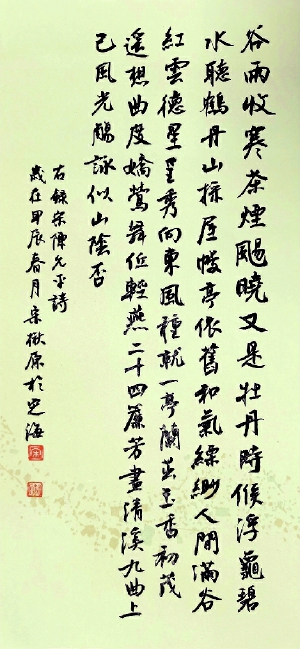 谷雨收寒茶煙颺曉又是牡丹時候浮龜碧
水聽鶴丹山採屋幔亭依舊和氣縹緲人間滿谷
紅雲德星呈秀向東風種就一亭蘭茁玉香初茂
遙想曲度嬌鶯舞低輕燕二十四簾芳晝清溪九曲上
已風光觴詠似山陰否
右錄宋陳允平詩
歲在甲辰春月宋楸原於海